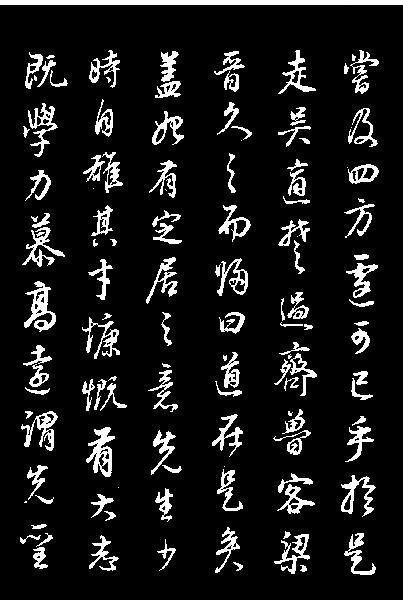 嘗及四方遽可已乎於是
走吳適楚過齊魯客梁
晉久之而歸曰道在是矣
蓋始有定居之意先生少
時自雄其才慷慨有大志
既學力慕高遠謂先聖